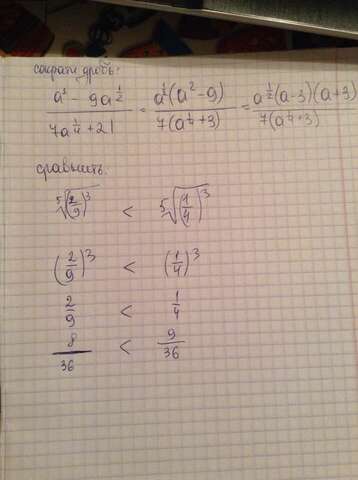 сократи дробь:
a¹ - 9a^½ / 7a^¼ + 21 = a^½(a² - 9) / 7(a^¼ + 3) = a^½(a-3)(a+3) / 7(a^¼ + 3)
сравнить.
⁵√(2/9)³ < ⁵√(1/4)³
(2/9)³ < (1/4)³
2/9 < 1/4
8/36 < 9/36